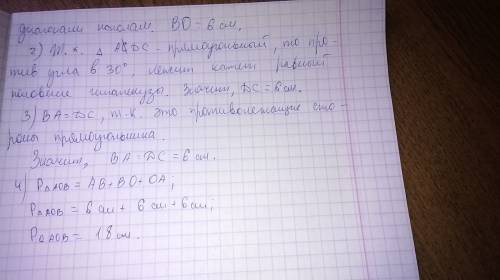 диагонали пополам. BO = 6 см.
2) Т.к. △ ABDC - прямоугольный, то про-
тив угла в 30°, лежит катет равный
половине гипотенузы. Значит, DC = 6 см.
3) BA = DC, т.к. это противолежащие сто-
роны прямоугольника.
Значит, BA = DC = 6 см.
4) P△AOB = AB + BO + OA;
P△AOB = 6 см + 6 см + 6 см;
P△AOB = 18 см.